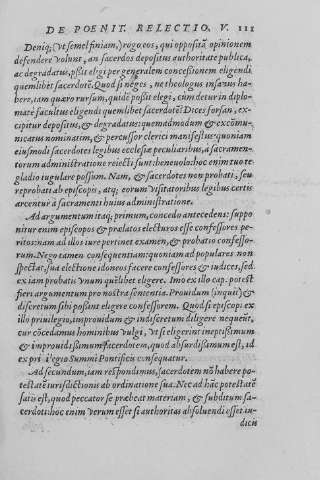 DE POENIT. RELECTIO. V. 111
Deniq; (vt semel finiam,) rogo eos, qui oppositā opinionem
defendere volunt, an sacerdos depositus authoritate publica,
ac degradatus, pßit eligi per generalem conceßionem eligendi
quemlibet sacerdotē. Quod si neges, ne theologus insanus ha-
bere, tam quæro rursum, quidē poßit elegi, cum detur in diplo-
mate facultus eligendi quemlibet sacerdotē? Dices forsan, ex-
cipitur depositus, & degradatus: quemadmodum & excōmu-
nicatus nominatim, & percussor clerici manifestus: quoniam
eiusmodi sacerdotes legibus ecclesiæ peculiaribus, à sacramen-
torum administratione reiecti sunt: beneuolo: hoc enim tuo te
gladio iugulare possum. Nam, & sacerdotes non probati, seu
reprobati ab episcopis, atq; eorum visitatoribus legibus certis
arcentur à sacramenti huius administratione.
Ad argumentum itaq; primum, concedo antecedens: suppo
nitur enim episcopos & prælatos electuros esse confessores pe-
ritos: nam ad illos iure pertinet examen, & probatio confesso-
rum. Nego tamen consequentiam: quoniam ad populares non
spectat sua electione idoneos facere confessores & iudices, sed
ex iam probatis vnum quēlibet eligere. Imo ex illo cap. potest
fieri argumentum pro nostra sententia. Prouidum (inquit) &
discretum sibi possint eligere confessorem. Quod si episcopi ex
illo priuilegio, imprudum & indiscretum diligere nequeūt,
cur cōcedamus hominibus vulgi, vt si eligerint ineptißimum
& improuidißimum sacerdotem, quod absurdißimum est, id
ex pri i'egio Summi Pontificis consequatur.
Ad secundum, iam respondimus, sacerdotem nō habere po-
testatē iurisdictionis ab ordinatione sua. Nec ad hāc potestatē
satis est, quod peccator se præbeat materiam, & subditum sa-
cerdoti: hoc enim verum esset si authoritas absoluendi esset in-
dicii